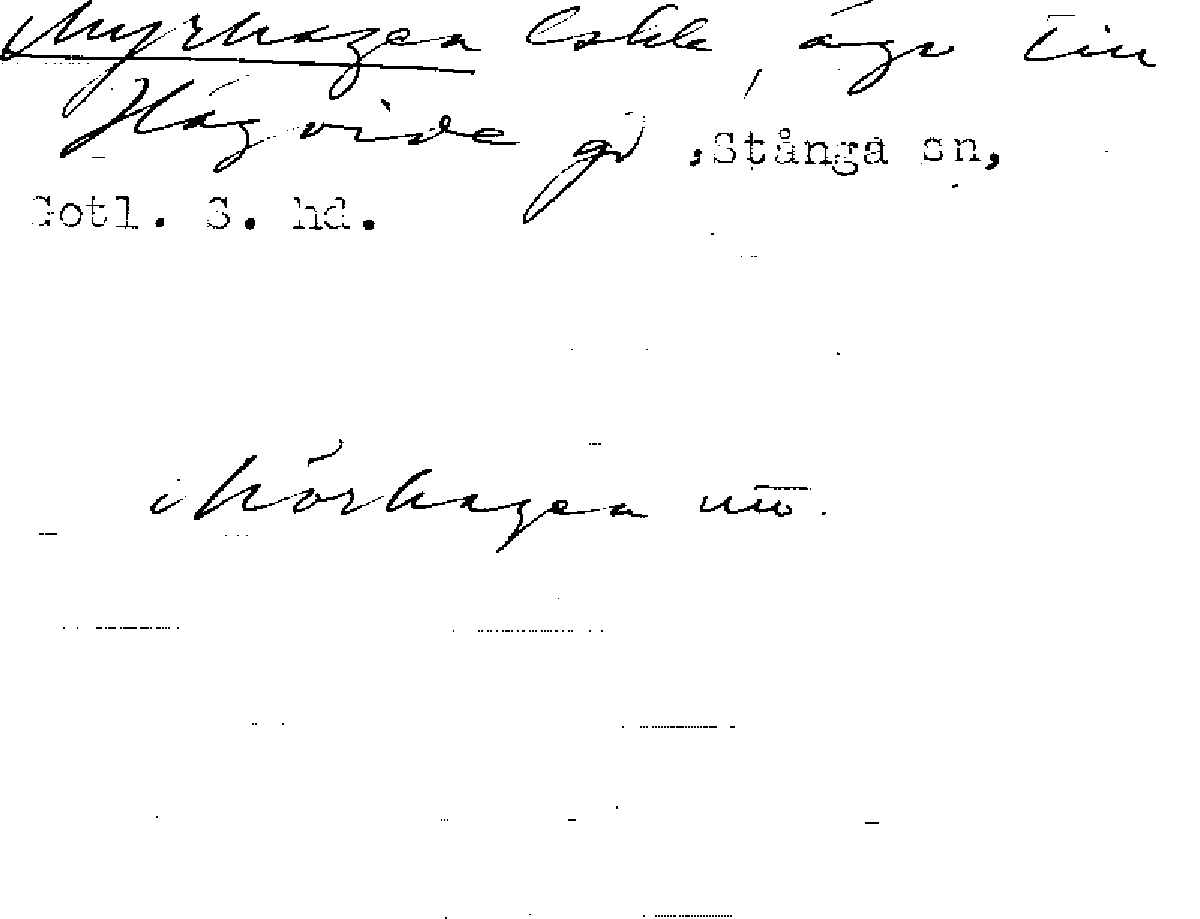 Myrhagen bskk, ägo till
Hägvide gd, Stånga sn,
Gotl. S. hd.
i Mörhagen